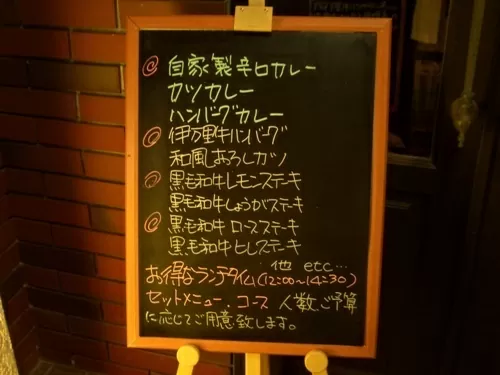 自家製辛口カレー
カツカレー
ハンバーグカレー
伊万里牛ハンバーグ
和風おろしカツ
黒毛和牛レモンステーキ
黒毛和牛しょうがステーキ
黒毛和牛ロースステーキ
黒毛和牛ヒレステーキ
他 etc...
お得なランチタイム(12:00〜14:30)
セットメニュー、コース 人数、ご予算
に応じてご用意致します。